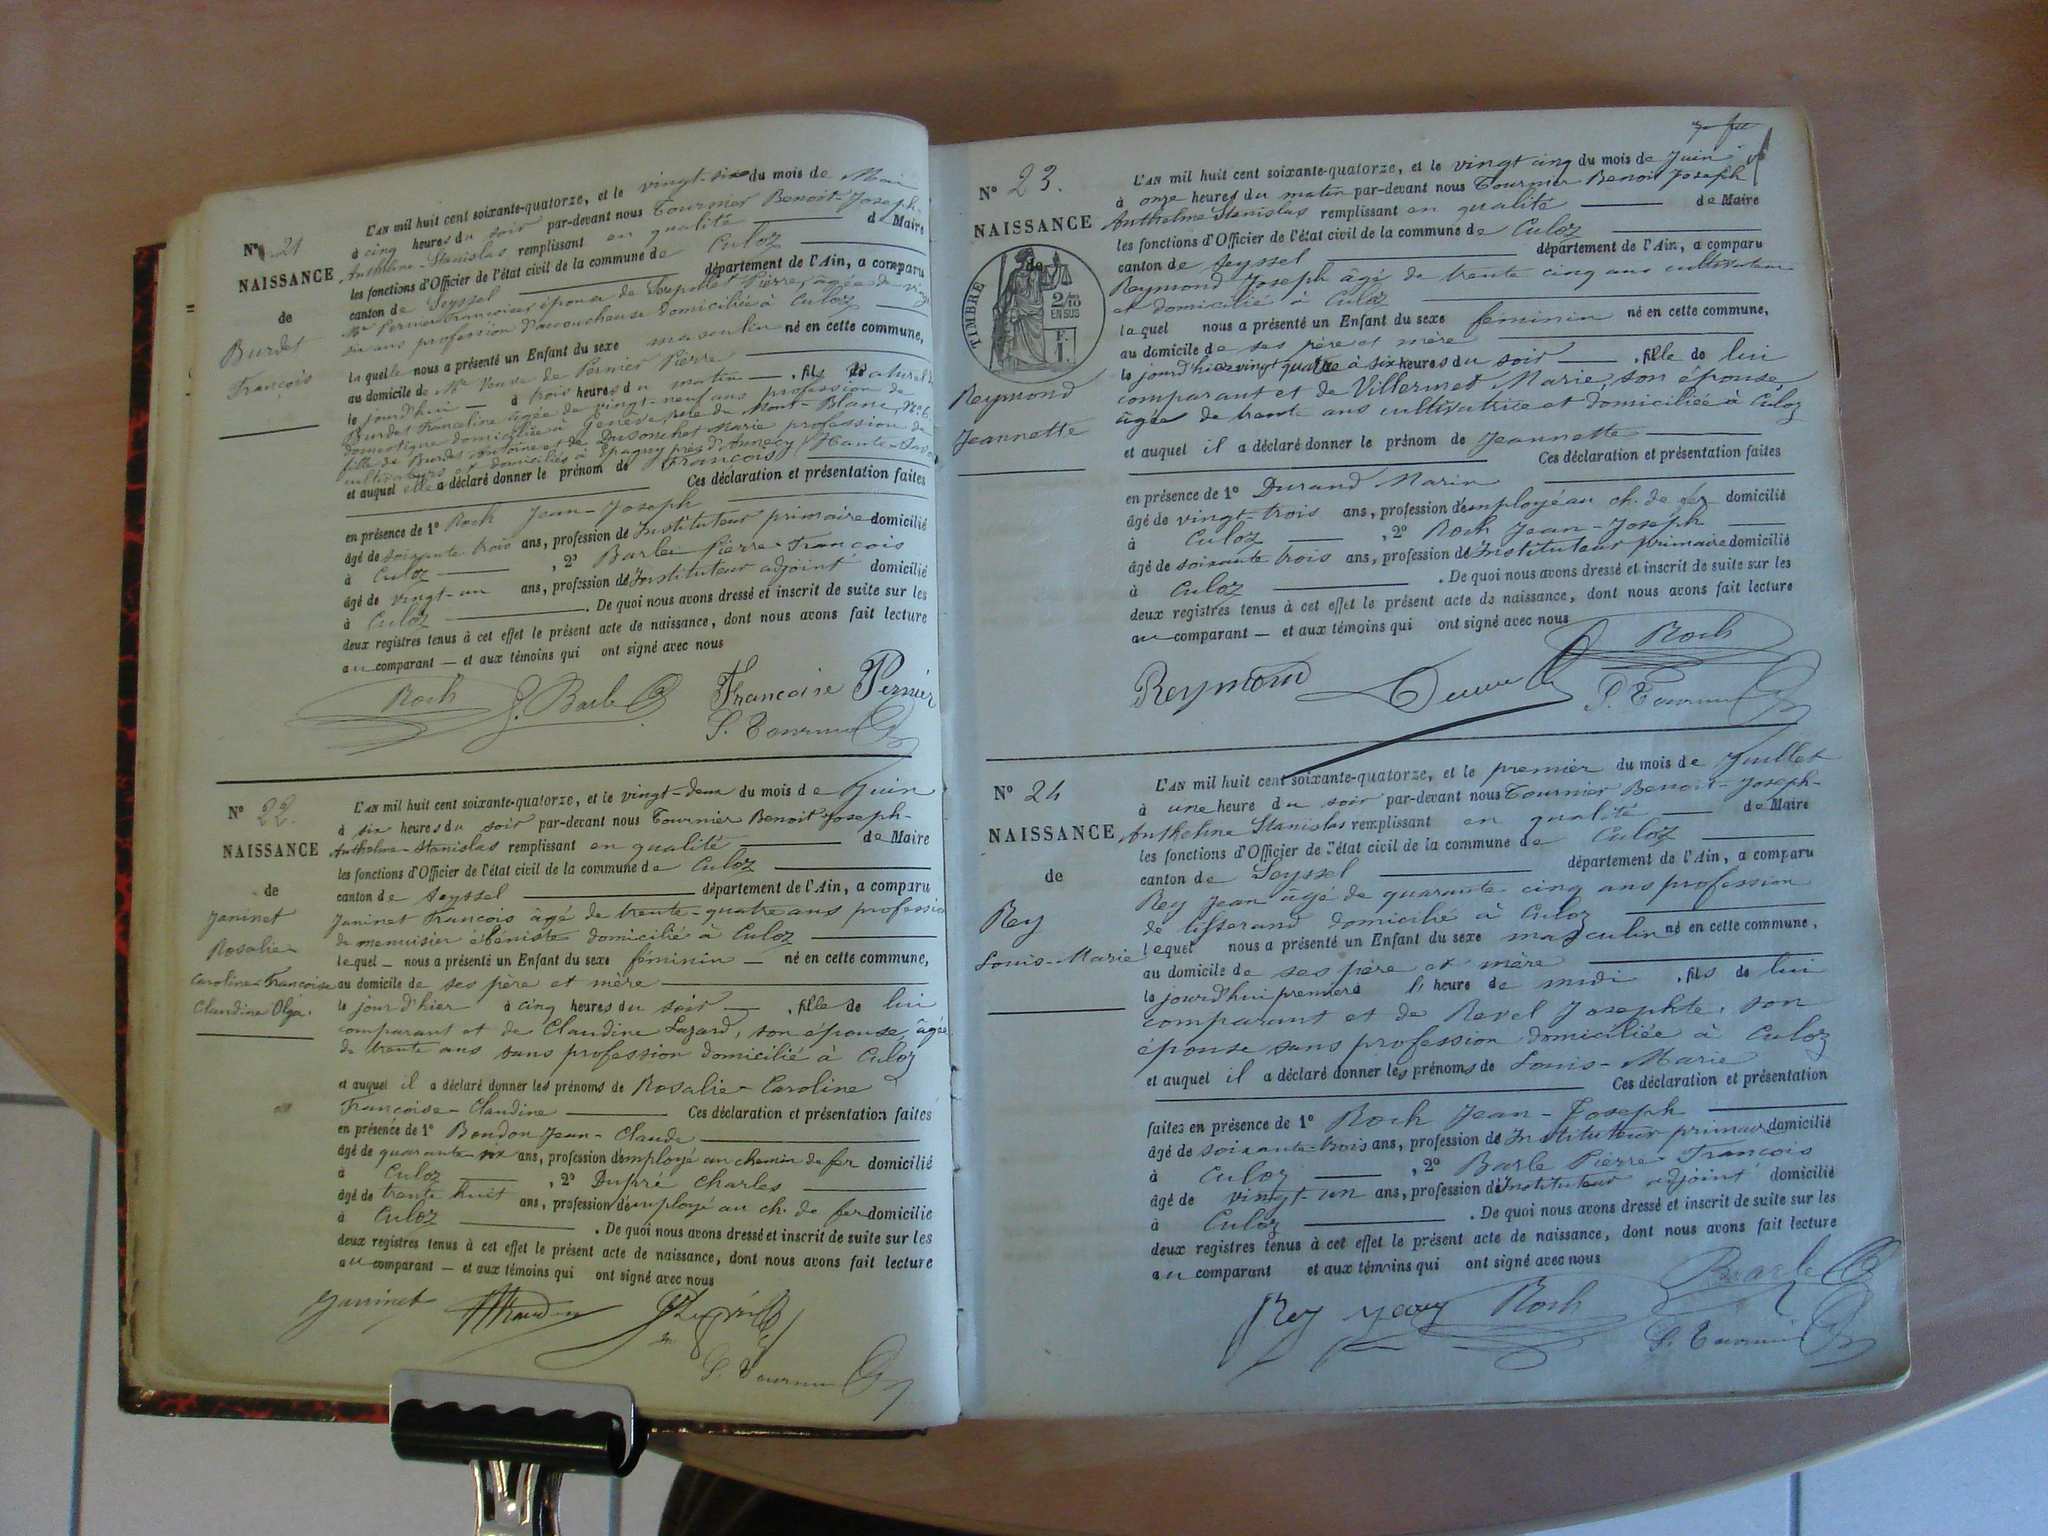 N° 21
NAISSANCE
de
Burdet
François
L'AN mil huit cent soixante-quatorze, et le vingt-six du mois de Mai
à cinq heures du soir par-devant nous Tournier Benoit-Joseph-
Anthelme-Stanislas remplissant en qualité de Maire
les fonctions d'Officier de l'état civil de la commune de Culoz
canton de Seyssel département de l'Ain, a comparu
Me Pernier Françoise, épouse de Pierre, âgée de
six ans profession d'accoucheuse domiciliée à Culoz
laquelle nous a présenté un Enfant du sexe masculin né en cette commune,
au domicile de Me Veuve de Pernier Pierre
le jourd'hui à trois heures du matin fils naturel de
Burdet Franceline âgée de vingt-neuf ans profession de
domestique domiciliée à Genève, rue du Mont-Blanc, N° 6,
fille de Burdet Antoine et de Dusonchet Marie profession de
cultivateurs et domiciliés à Epagny près d'Annecy (Haute-Savoie
et auquel elle a déclaré donner le prénom de François
Ces déclaration et présentation faites
en présence de 1° Roch Jean-Joseph
âgé de soixante trois ans, profession d'Instituteur primaire domicilié
à Culoz , 2° Barle Pierre-François
âgé de vingt-un ans, profession d'Instituteur adjoint domicilié
à Culoz . De quoi nous avons dressé et inscrit de suite sur les
deux registres tenus à cet effet le présent acte de naissance, dont nous avons fait lecture
au comparant — et aux témoins qui ont signé avec nous
Roch P. Barle Françoise Pernier
S. Tournier
N° 22.
NAISSANCE
de
Janinet
Rosalie
Caroline-Françoise
Claudine Olga.
L'AN mil huit cent soixante-quatorze, et le vingt-deux du mois de Juin
à six heures du soir par-devant nous Tournier Benoit Joseph-
Anthelme-Stanislas remplissant en qualité de Maire
les fonctions d'Officier de l'état civil de la commune de Culoz
canton de Seyssel département de l'Ain, a comparu
Janinet François âgé de trente-quatre ans profession
de menuisier ébéniste domicilié à Culoz
lequel — nous a présenté un Enfant du sexe féminin — né en cette commune,
au domicile de ses père et mère
le jourd'hier à cinq heures du soir — , fille de lui
comparant et de Claudine Lazard, son épouse, âgée
de trente ans sans profession domicilié à Culoz
et auquel il a déclaré donner les prénoms de Rosalie-Caroline
Françoise-Claudine Ces déclaration et présentation faites
en présence de 1° Bondon Jean-Claude
âgé de quarante-six ans, profession d'employé au chemin de fer domicilié
à Culoz , 2° Dupré Charles
âgé de trente huit ans, profession d'employé au ch. de fer domicilié
à Culoz . De quoi nous avons dressé et inscrit de suite sur les
deux registres tenus à cet effet le présent acte de naissance, dont nous avons fait lecture
au comparant — et aux témoins qui ont signé avec nous
Janinet
S. Tournier
N° 23.
NAISSANCE
de
TIMBRE
2/10
EN SUS
F.
1.
Reymond
Jeannette
L'AN mil huit cent soixante-quatorze, et le vingt cinq du mois de Juin
à onze heures du matin par-devant nous Tournier Benoit Joseph
Anthelme Stanislas remplissant en qualité de Maire
les fonctions d'Officier de l'état civil de la commune de Culoz
canton de Seyssel département de l'Ain, a comparu
Reymond Joseph âgé de trente cinq ans cultivateur
et domicilié à Culoz
laquel nous a présenté un Enfant du sexe féminin né en cette commune,
au domicile de ses père et mère
le jourd'hier vingt quatre à six heures du soir — , fille de lui
comparant et de Villermet Marie, son épouse,
âgée de trente ans cultivatrice et domiciliée à Culoz
et auquel il a déclaré donner le prénom de Jeannette
Ces déclaration et présentation faites
en présence de 1° Durand Marin
âgé de vingt-trois ans, profession d'employé au ch. de fer domicilié
à Culoz , 2° Roch Jean-Joseph
âgé de soixante trois ans, profession d'Instituteur primaire domicilié
à Culoz . De quoi nous avons dressé et inscrit de suite sur les
deux registres tenus à cet effet le présent acte de naissance, dont nous avons fait lecture
au comparant — et aux témoins qui ont signé avec nous
Roch
Reymond
S. Tournier
N° 24
NAISSANCE
de
Rey
Louis-Marie
L'AN mil huit cent soixante-quatorze, et le premier du mois de Juillet
à une heure du soir par-devant nous Tournier Benoit-Joseph-
Anthelme Stanislas remplissant en qualité de Maire
les fonctions d'Officier de l'état civil de la commune de Culoz
canton de Seyssel département de l'Ain, a comparu
Rey Jean âgé de quarante-cinq ans profession
de tisserand domicilié à Culoz
lequel nous a présenté un Enfant du sexe masculin né en cette commune,
au domicile de ses père et mère
le jourd'hui premier à l'heure de midi , fils de lui
comparant et de Revel Josephte, son
épouse sans profession domiciliée à Culoz
et auquel il a déclaré donner les prénoms de Louis-Marie
Ces déclaration et présentation
faites en présence de 1° Roch Jean-Joseph
âgé de soixante-trois ans, profession d'Instituteur primaire domicilié
à Culoz , 2° Barle Pierre-François
âgé de vingt-un ans, profession d'Instituteur adjoint domicilié
à Culoz . De quoi nous avons dressé et inscrit de suite sur les
deux registres tenus à cet effet le présent acte de naissance, dont nous avons fait lecture
au comparant et aux témoins qui ont signé avec nous
Rey Jean Roch Barle
S. Tournier